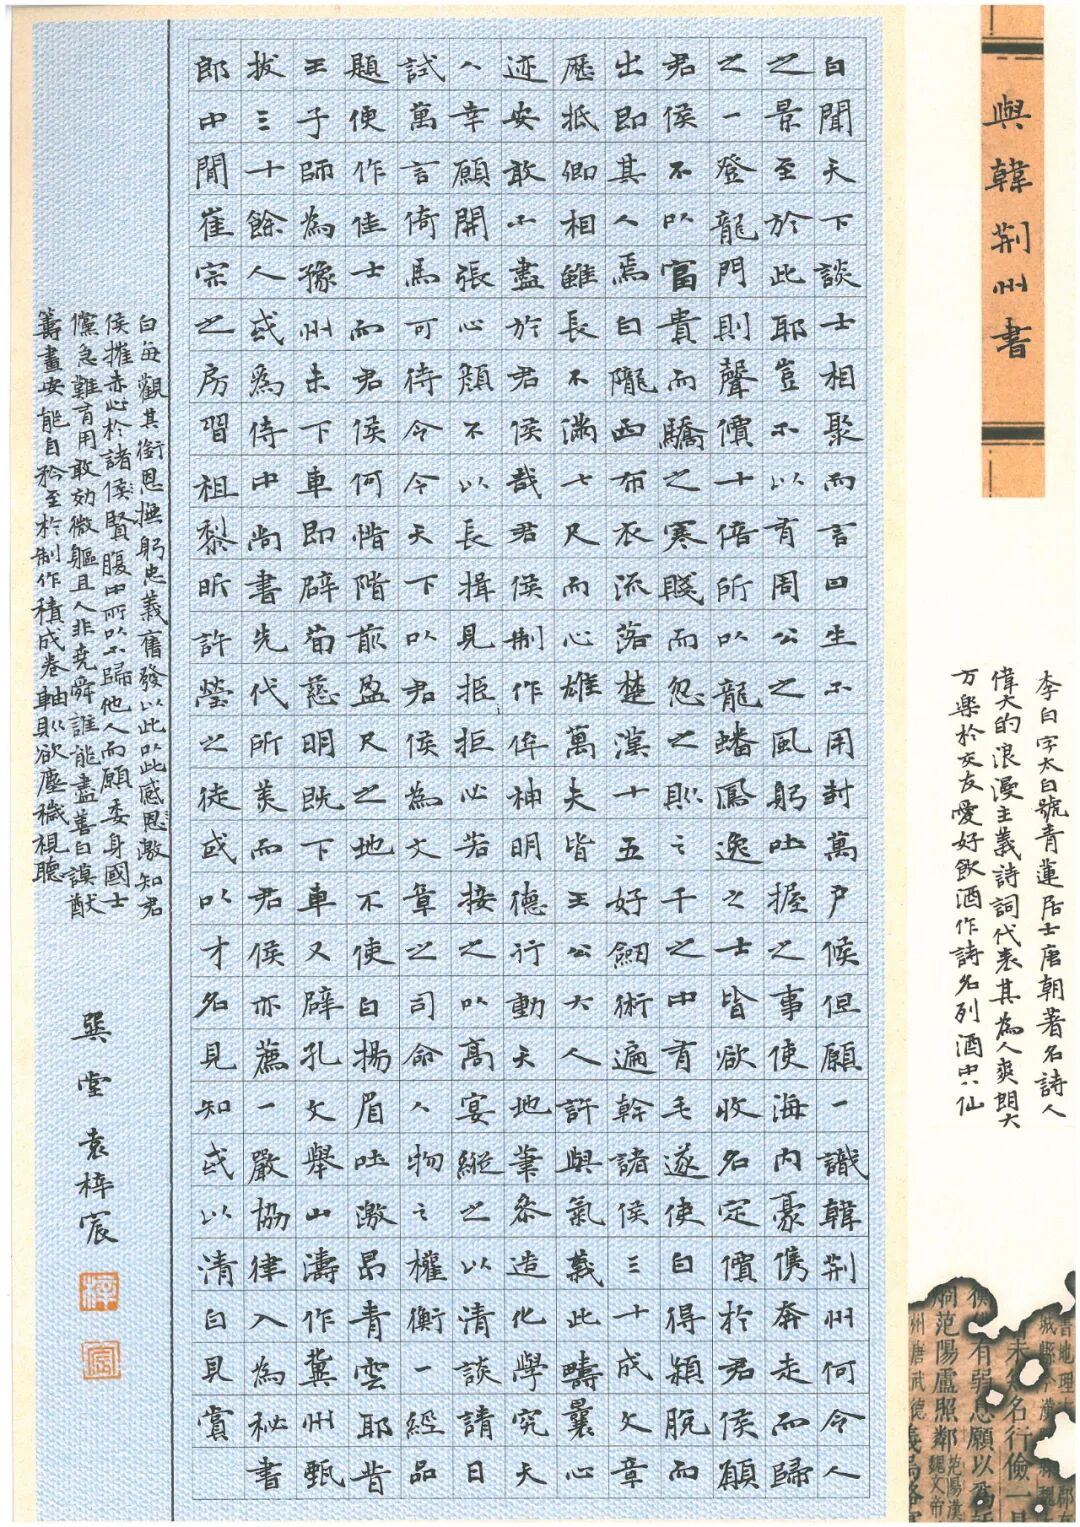 與韓荊州書
李白字太白號青蓮居士唐朝著名詩人
偉大的浪漫主義詩詞代表其為人爽朗大
万樂於交友愛好飲酒作詩名列酒中八仙
白聞天下談士相聚而言曰生不用封萬戶侯但願一識韓荊州何令人
之景至於此耶豈不以有周公之風躬吐握之事使海內豪儁奔走而歸
之一登龍門則聲價十倍所以龍蟠鳳逸之士皆欲收名定價於君侯願
君侯不以富貴而驕之寒賤而忽之則三千之中有毛遂使白得穎脫而
出即其人焉白隴西布衣流落楚漢十五好劒術遍幹諸侯三十成文章
歷抵卿相雖長不滿七尺而心雄萬夫皆王公大人許與氣義此疇曩心
迹安敢不盡於君侯哉君侯制作侔神明德行動天地筆參造化學究天
人幸願開張心顏不以長揖見拒拒必若接之以高宴縱之以清談請日
試萬言倚馬可待今今天下以君侯為文章之司命人物之權衡一經品
題便作佳士而君侯何惜階前盈尺之地不使白揚眉吐激昂青雲耶昔
王子師為豫州未下車即辟荀慈明既下車又辟孔文舉山濤作冀州甄
拔三十餘人或為侍中尚書先代所美而君侯亦薦一嚴協律入為秘書
郎中間崔宗之房習祖黎昕許瑩之徒或以才名見知或以清白見賞
白每觀其銜恩撫躬忠義奮發以此以此感恩激知君
侯推赤心於諸侯賢腹中所以不歸他人而願委身國士
儻急難有用敢効微軀且人非堯舜誰能盡善白謨猷
籌畫安能自矜至於制作積成卷軸則欲塵穢視聽
巽堂袁梓宸
梓
宸
書地理
城縣令漢
未名行儉一
有弱息願以為
炯范陽盧照鄰范陽漢
州唐武德義烏